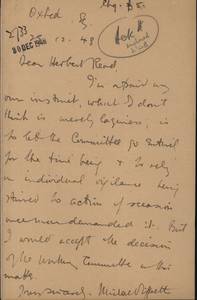 Oxted
30 DEC 1948
.12.48
Dear Herbert Read,
I'm afraid my
own instinct, which I don't
think is merely laziness, is
to let the Committee go
for the time being & to rely
on individual vigilance being
stirred to action if occasion
demanded it. But
I would accept the decision
of the Working Committee in this
matter.
Yours sincerely, Michael Tippett